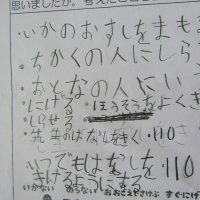 思いましたか。考えたことを
いかのおすしをまもる
ちかくの人にしら
おとなの人にい
にげる ほうそうをよくき
しらせる
先生のはなしをきく・110
いつでもはなしを・110
きけるようになる
いかない のらない おおごえでさけぶ すぐにげ